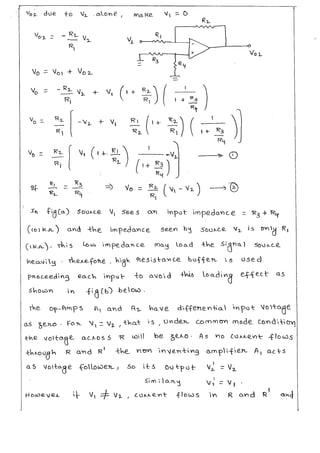 Vo2 due to V2 alone, make V1 = 0
R2
Vo2 = - R2/R1 V2
V2
R1
-
+
Vo2
R3
R4
Vo = Vo1 + Vo2
Vo = -R2/R1 V2 + V1 (1 + R2/R1) (1/(1 + R3/R4))
Vo = R2/R1 [-V2 + V1 R1/R2 (1 + R2/R1) (1/(1 + R3/R4))]
Vo = R2/R1 [V1 (1 + R1/R2) 1/(1 + R3/R4) - V2] → ①
If R1/R2 = R3/R4 ⇒ Vo = R2/R1 (V1 - V2) → ②
In fig(a) source V1 sees an input impedance = R3 + R4
(101KΩ) and the impedance seen by source V2 is only R1
(1KΩ). This low impedance may load the signal source
heavily. Therefore, high resistance buffer is used
preceeding each input to avoid this loading effect as
shown in fig(b) below.
The op-Amps A1 and A2 have differential input voltage
as zero. For V1 = V2, that is, under common mode condition
the voltage across R will be zero. As no current flows
through R and R' the non inverting amplifier A1 acts
as voltage follower, so its output V2' = V2
Similarly V1' = V1.
However if V1 ≠ V2, current flows in R and R' and